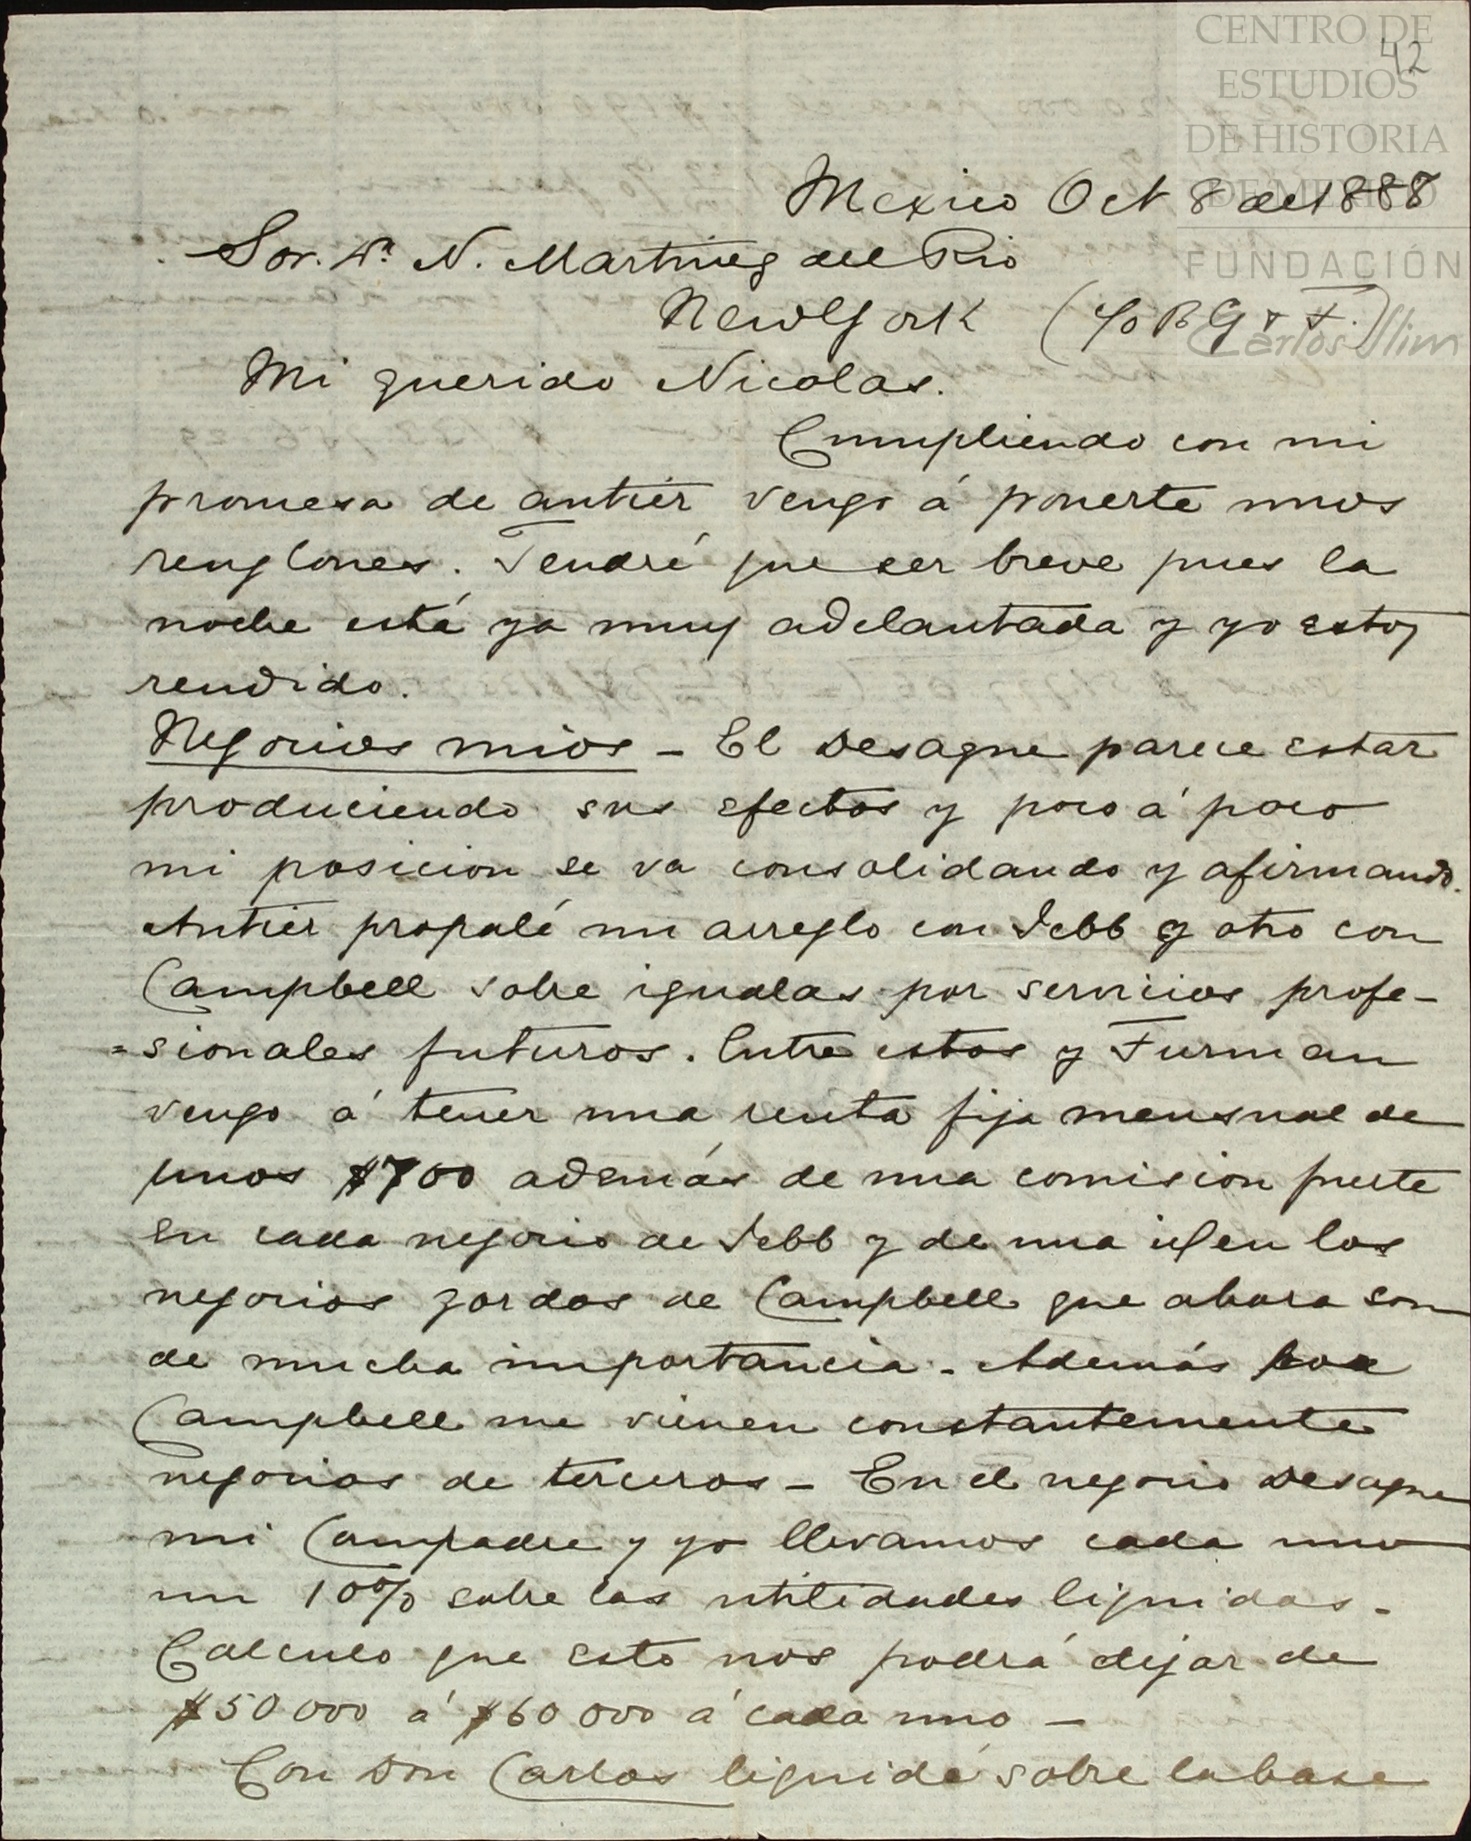 CENTRO DE
ESTUDIOS
DE HISTORIA
DE MÉXICO
FUNDACIÓN
Carlos Slim
42
Mexico Oct 8 de 1888
Sor. Dn. N. Martinez del Rio
New York (c/o B G & F.)
Mi querido Nicolas.
Cumpliendo con mi
promesa de antier vengo á ponerte unos
renglones. Tendré que ser breve pues la
noche está ya muy adelantada y yo estoy
rendido.
Negocios mios - El Desague parece estar
produciendo sus efectos y poco á poco
mi posicion se va consolidando y afirmando.
Antier propalé un arreglo con Jebb y otro con
Campbell sobre igualas por servicios profe-
=sionales futuros. Entre estos y Furman
vengo á tener una renta fija mensual de
unos $700 además de una comision fuerte
en cada negocio de Jebb y de una id en los
negocios gordos de Campbell que ahora son
de mucha importancia - Además por
Campbell me vienen constantemente
negocios de terceros - En el negocio Desague
mi Compadre y yo llevamos cada uno
un 10% sobre las utilidades liquidas -
Calculo que esto nos podrá dejar de
$50 000 á $60 000 á cada uno -
Con Don Carlos liquidé sobre la base